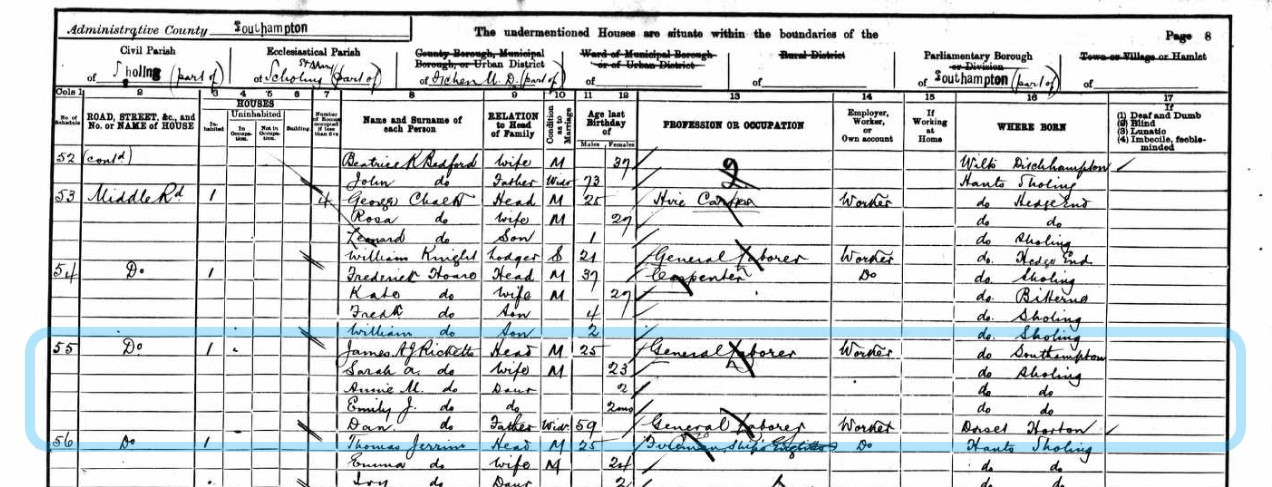 Administrative County Southampton The undermentioned Houses are situate within the boundaries of the Page 8
Civil Parish Ecclesiastical Parish County Borough, Municipal Borough, or Urban District Ward of Municipal Borough or of Urban District Rural District Parliamentary Borough or Division Town or Village or Hamlet
of Sholing (part of) of St Mary Scholing (part of) of Itchen U.D. (part of) of of of Southampton (part of) of
Cols 1 2 3 4 5 6 7 8 9 10 11 12 13 14 15 16 17
No. of Schedule ROAD, STREET, &c., and No. or NAME of HOUSE HOUSES Inhabited Uninhabited In Occupation Not in Occupation Building Number of Rooms if less than five Name and Surname of each Person RELATION to Head of Family Condition as to Marriage Age last Birthday of Males Females PROFESSION OR OCCUPATION Employer, Worker, or Own account If Working at Home WHERE BORN If (1) Deaf and Dumb (2) Blind (3) Lunatic (4) Imbecile, feeble-minded
52 (contd) Beatrice K Bedford Wife M 37 Wilts Ditchhampton
John do Father Widr 73 Hants Sholing
53 Middle Rd 1 4 George Chalk Head M 25 Worker do Hedge End
Rosa do Wife M 27 do do
Leonard do Son 1 do Sholing
William Knight Lodger S 21 General Laborer Worker do Hedge End
54 Do 1 Frederick Hoare Head M 37 Carpenter Do do Sholing
Kate do Wife M 27 do Bitterne
Fredk do Son 4 do Sholing
William do Son 2 do Sholing
55 Do 1 James A J Ricketts Head M 25 General Laborer Worker do Southampton
Sarah A. do Wife M 23 do Sholing
Annie M. do Daur 2 do do
Emily J. do do 2mo do do
Dan. do Father Widr 59 General Laborer Worker Dorset Horton
56 Do 1 Thomas Jerrim Head M 25 Do Hants Sholing
Emma do Wife M 24 do do
Ivy do Daur 2 do do